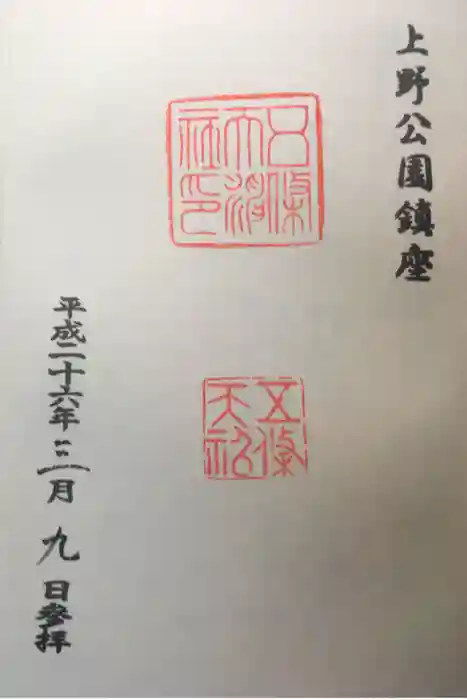 上野公園鎮座
五條天神社印
五條天神
平成二十六年三月九日參拝